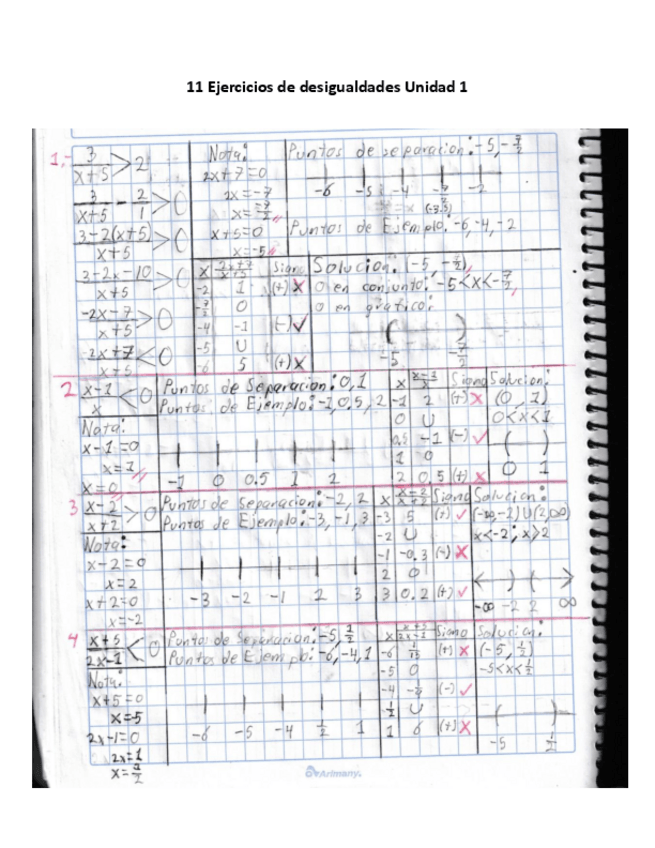 11 Ejercicios de desigualdades Unidad 1
1.- 3/(x+5) > 2
3/(x+5) - 2/1 > 0
(3-2(x+5))/(x+5) > 0
(3-2x-10)/(x+5) > 0
(-2x-7)/(x+5) > 0
(2x+7)/(x+5) < 0
Nota:
2x+7=0
2x=-7
x=-7/2
x+5=0
x=-5
Puntos de separacion: -5, -7/2
-6 -5 -4 -7/2 -2
(-3.5)
Puntos de Ejemplo: -6, -4, -2
x (2x+7)/(x+5) Signo
-2 1 (+) X
-7/2 0
-4 -1 (-) ✓
-5 U
-6 5 (+) X
Solucion: (-5, -7/2)
O en conjunto: -5<x<-7/2
O en grafico:
( )
-5 -7/2
2 (x-1)/x < 0
Nota:
x-1=0
x=1
x=0
Puntos de Separacion: 0, 1
Puntos de Ejemplo: -1, 0.5, 2
-1 0 0.5 1 2
x (x-1)/x Signo
-1 2 (+) X
0 U
0.5 -1 (-) ✓
1 0
2 0.5 (+) X
Solucion:
(0, 1)
0<x<1
( )
0 1
3 (x-2)/(x+2) > 0
Nota:
x-2=0
x=2
x+2=0
x=-2
Puntos de Separacion: -2, 2
Puntos de Ejemplo: -3, -1, 3
-3 -2 -1 2 3
x (x-2)/(x+2) Signo
-3 5 (+) ✓
-2 U
-1 -0.3 (-) X
2 0
3 0.2 (+) ✓
Solucion:
(-∞,-2)U(2,∞)
x<-2; x>2
-∞ -2 2 ∞
4 (x+5)/(2x-1) < 0
Nota:
x+5=0
x=-5
2x-1=0
2x=1
x=1/2
Puntos de Separacion: -5, 1/2
Puntos de Ejemplo: -6, -4, 1
-6 -5 -4 1/2 1
x (x+5)/(2x-1) Signo
-6 1/13 (+) X
-5 0
-4 (-) ✓
1/2 U
1 6 (+) X
Solucion:
(-5, 1/2)
-5<x<1/2
( )
-5 1/2
Arimany.